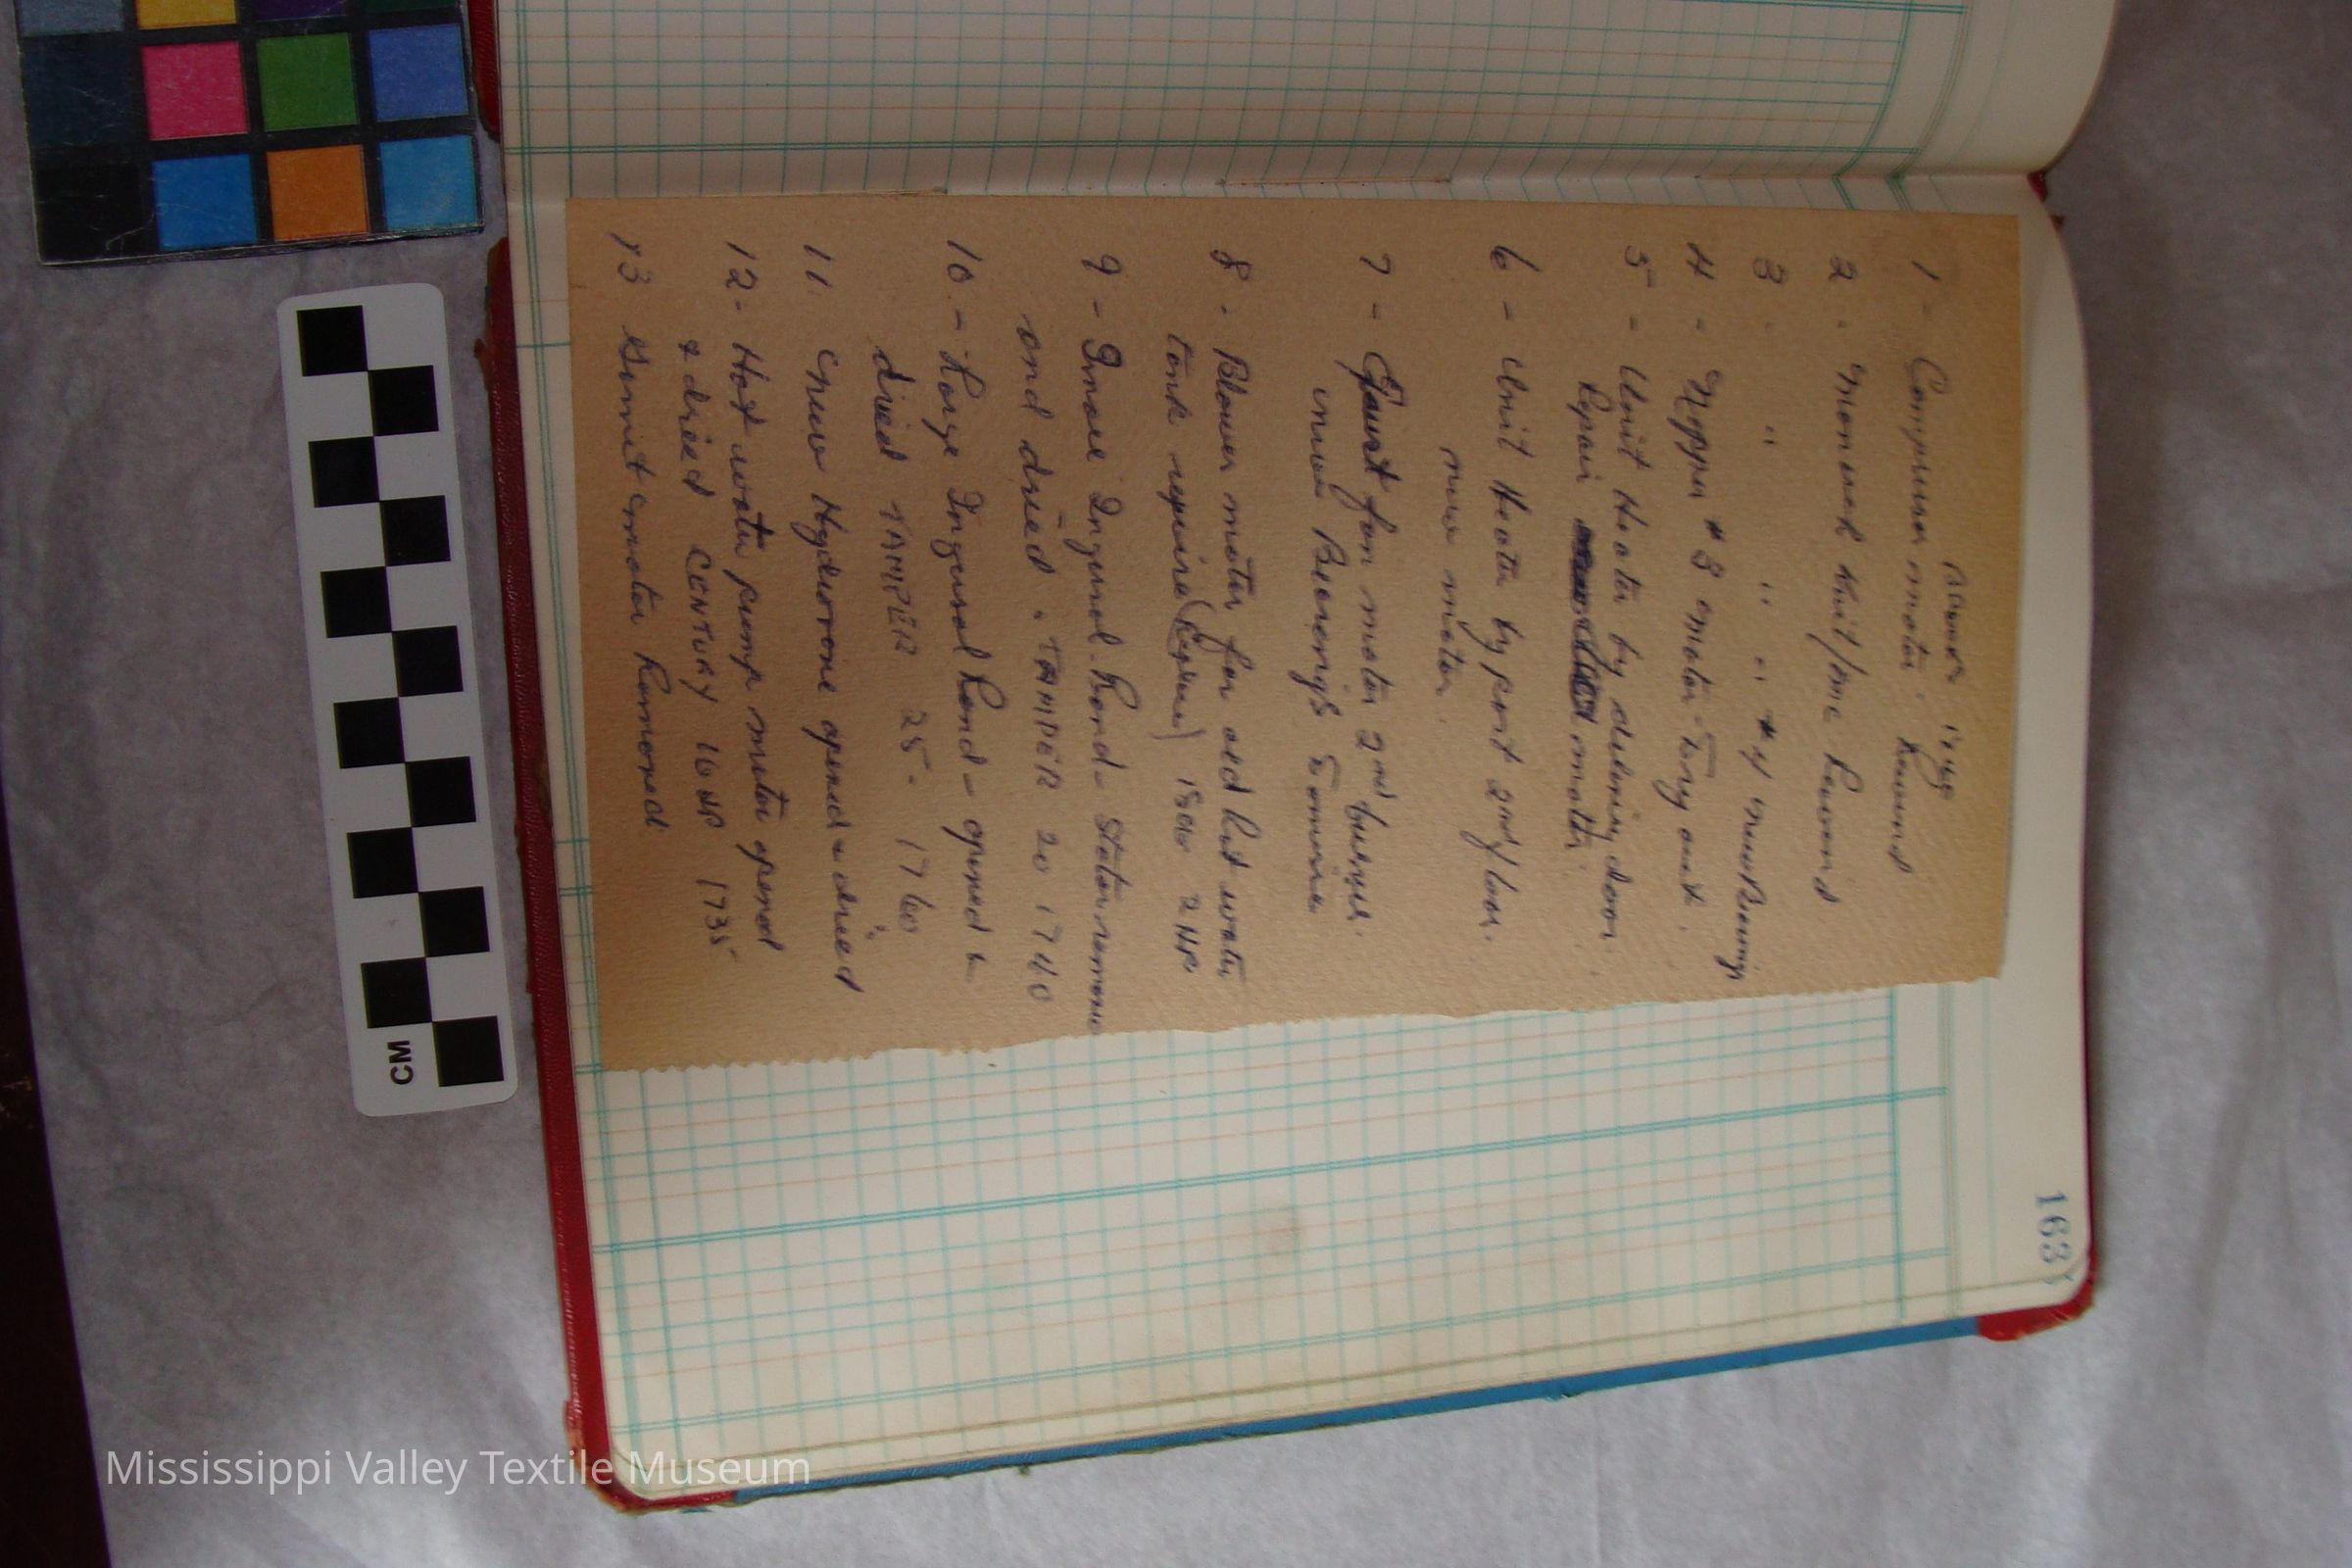 163
1 - Compressor motor. Rewound
2. Monarch Knit/Mic Rewound
3. " " " #4 new Bearings
4 - Napper #3 motor
5 - Unit Heater by delivery door.
Repair motor.
6 - Unit Heater by port 2nd floor.
new motor.
7 - fan motor 2nd
new Bearings
8. Blower motor for old hot water
tank require (Repair) 1800 2 HP
9 - Small Ingersol Rand - Stator remove
and dried. TAMPER 20 1740
10 - Large Ingersol Rand - opened &
dried TAMPER 25 - 1760
11. Hydrovane opened & dried
12 - Hot water pump motor opened
& dried CENTURY 10 HP 1735
13 motor Removed
CM
Mississippi Valley Textile Museum